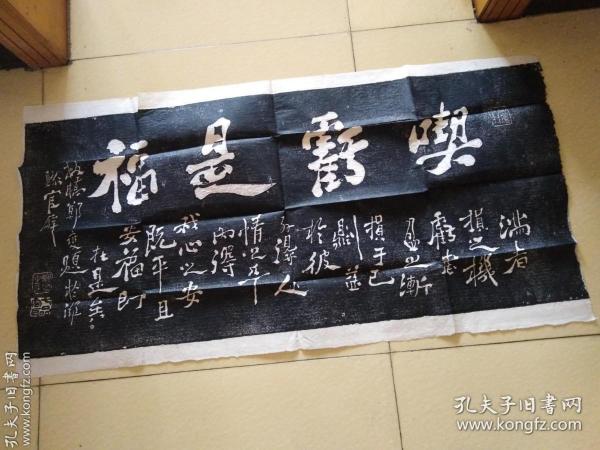 喫虧是福
滿者
損之機
虧者
盈之漸
損于己
則益
於彼
外得人
情之平
內得
我心之安
既平且
安福即
在是矣
板橋鄭燮題於濰
縣官齋
孔夫子旧书网
www.kongfz.com
孔夫子旧书网
www.kongfz.com